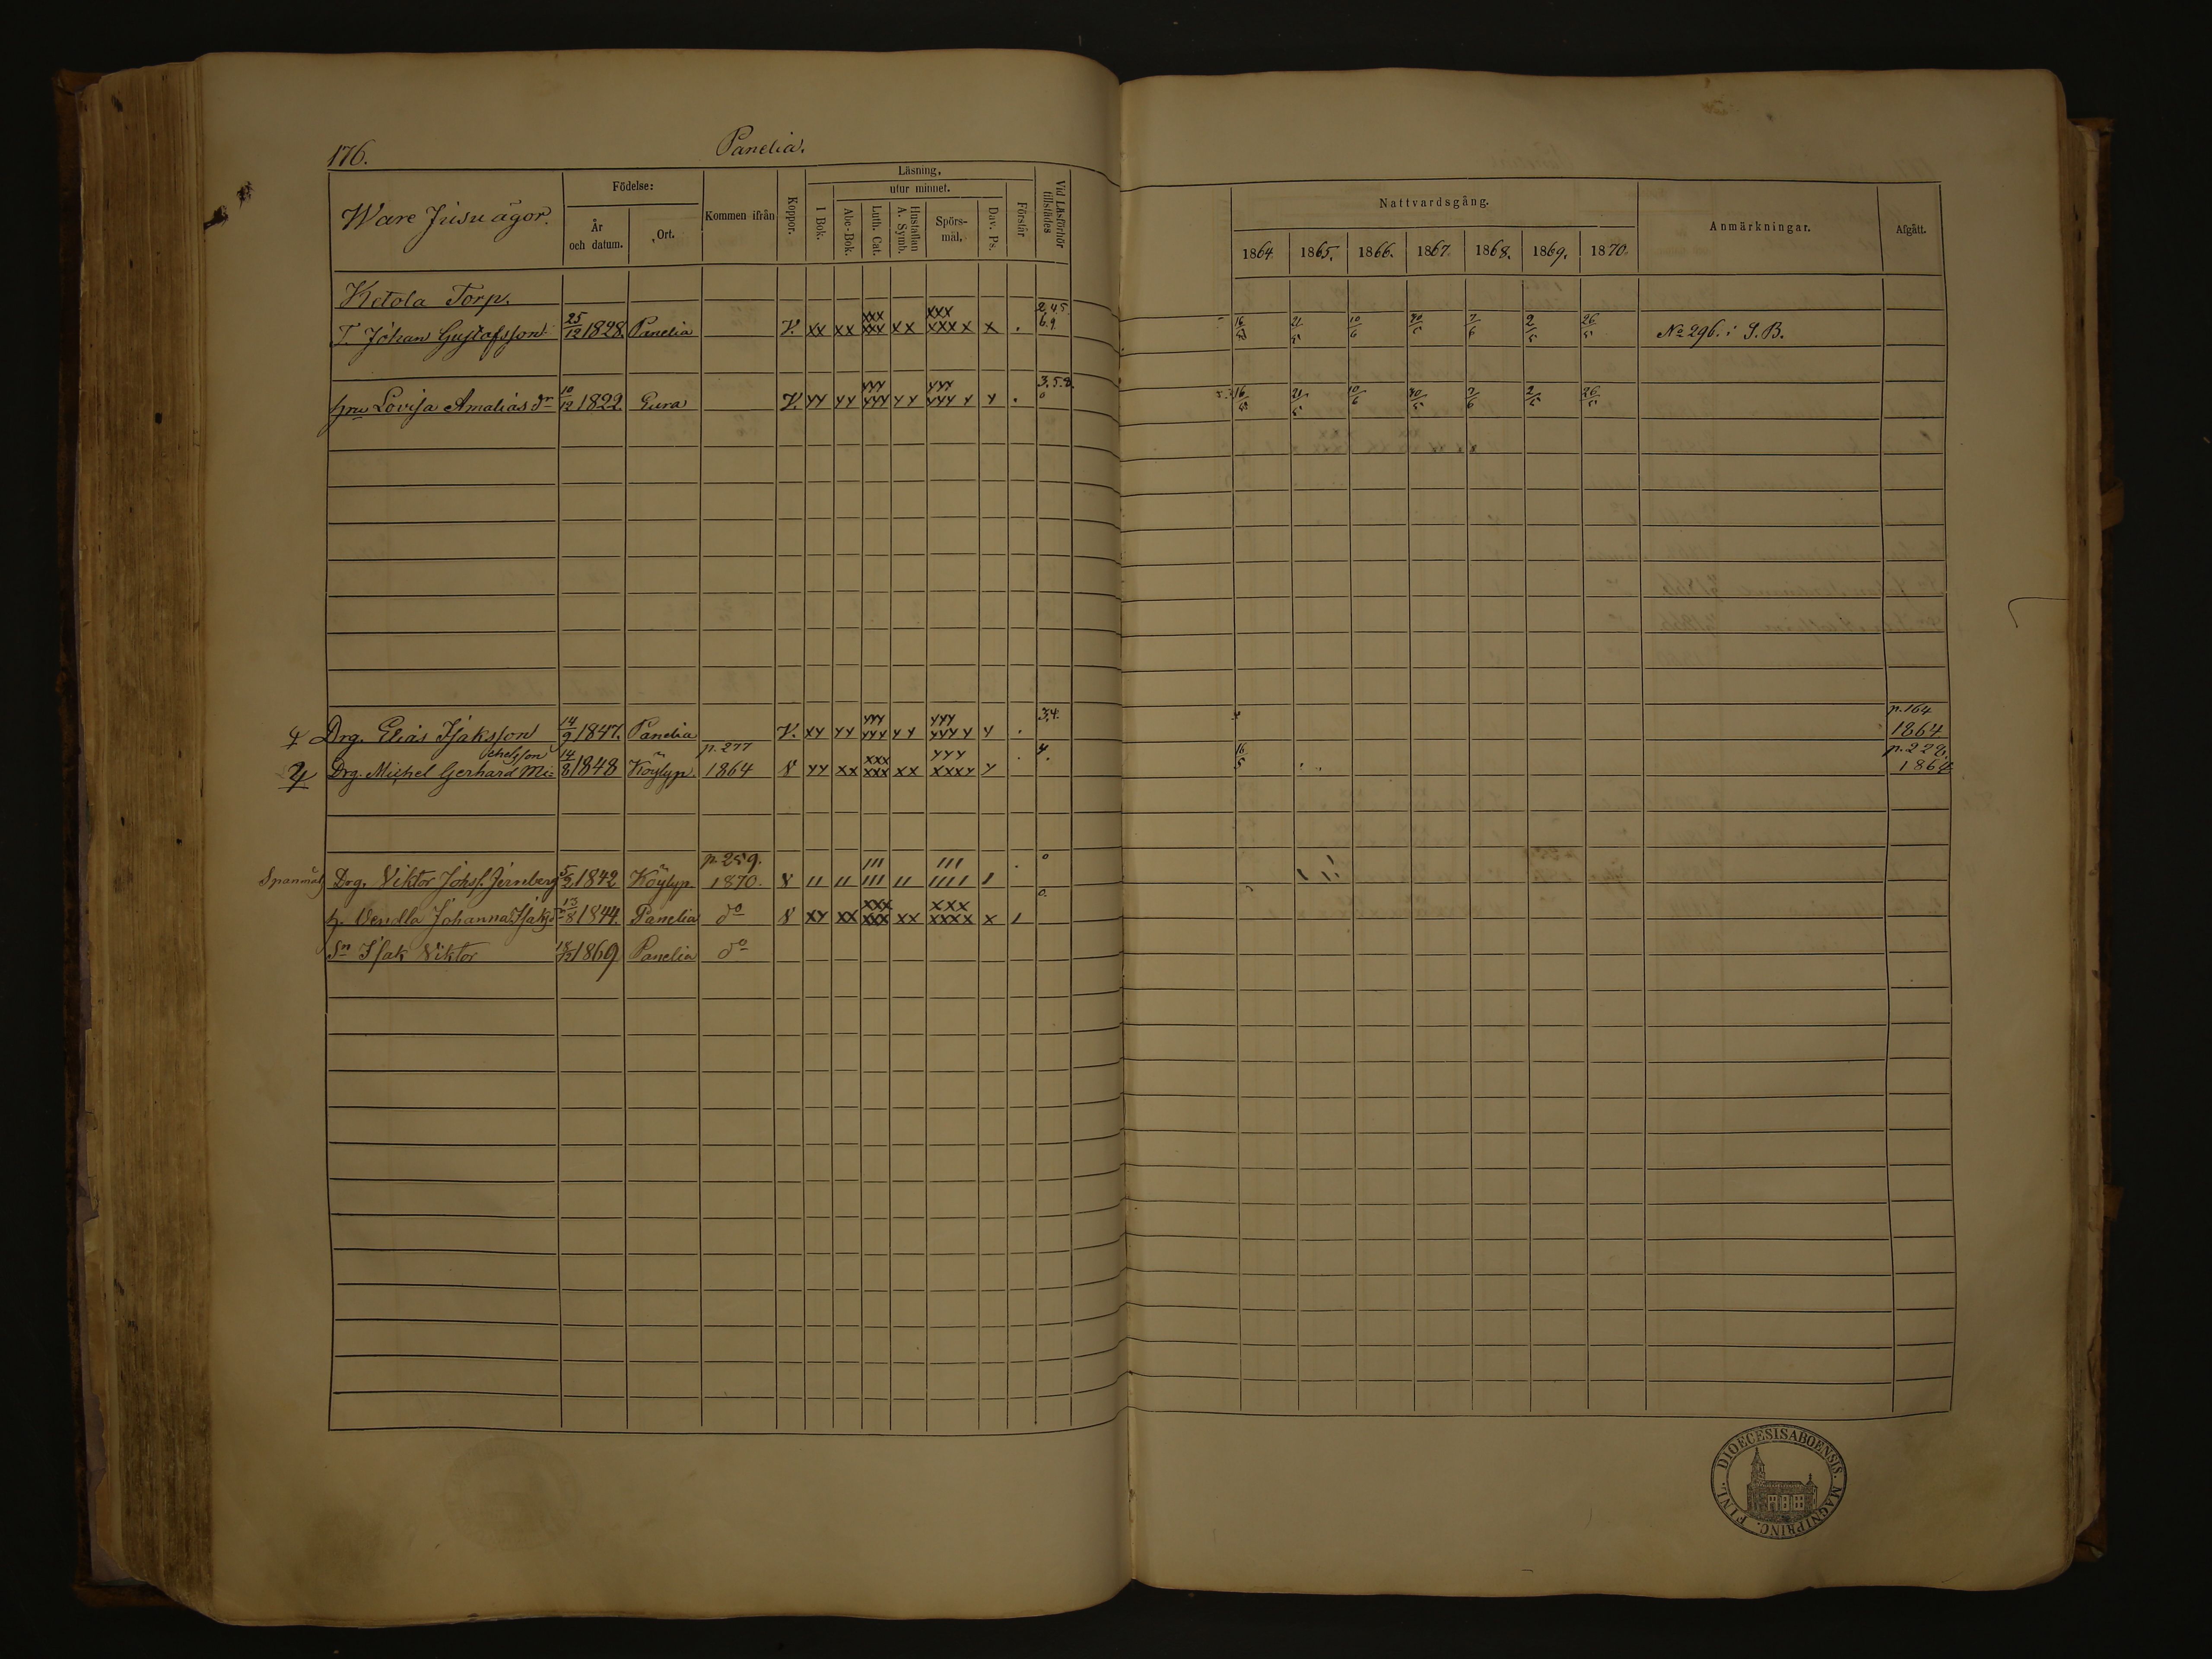 176.
Panelia.
Ware Jusu ägor.
Födelse:
År och datum.
Ort.
Kommen ifrån
Koppor.
Läsning,
I Bok.
utur minnet.
Abc-Bok.
Luth. Cat.
Hustaflan A. Symb.
Spörs-mål.
Dav. Ps.
Förstår
Vid Läsförhör tillstädes
Nattvardsgång.
1864 1865. 1866. 1867. 1868. 1869. 1870.
Anmärkningar.
Afgått.
Ketola Torp.
T. Johan Gustafsson 25/12 1828. Panelia V. xx xx xxx xxx xx xxx xxx x x . 2.4.5. 6.9. 16/5 21/5 10/6 30/5 7/6 2/5 26/5 No 296. i S.B.
hru Lovisa Amalias dr 10/12 1822. Eura V. yy yy yyy yyy yy yyy yyy y y . 3.5.8. 0 16/5 21/5 10/6 30/5 7/6 2/5 26/5
Drg. Elias Isaksson 14/9 1847. Panelia V. xy yy yyy yyy yy yyy yyy y y . 3,4. p. 164 1864
Drg. Michel Gerhard Mi-chelsson 14/8 1848 Köylyp. p. 277 1864 V yy xx xxx xxx xx yyy xxxy y . 4. 16/5 p. 229. 1864
Spanmål Drg. Viktor Johs f. Jernberg 5/2 1842 Köylyp. p. 259. 1870. V 11 11 111 111 11 111 1111 1 . 0
h. Vendla Johanna Isaksd 13/8 1844. Panelia do V xy xx xxx xxx xx xxx xxxx x 1 0.
Sn Isak Viktor 1869 Panelia do
DIOECESIS ABOENSIS. MAGNI PRINC. FINL.